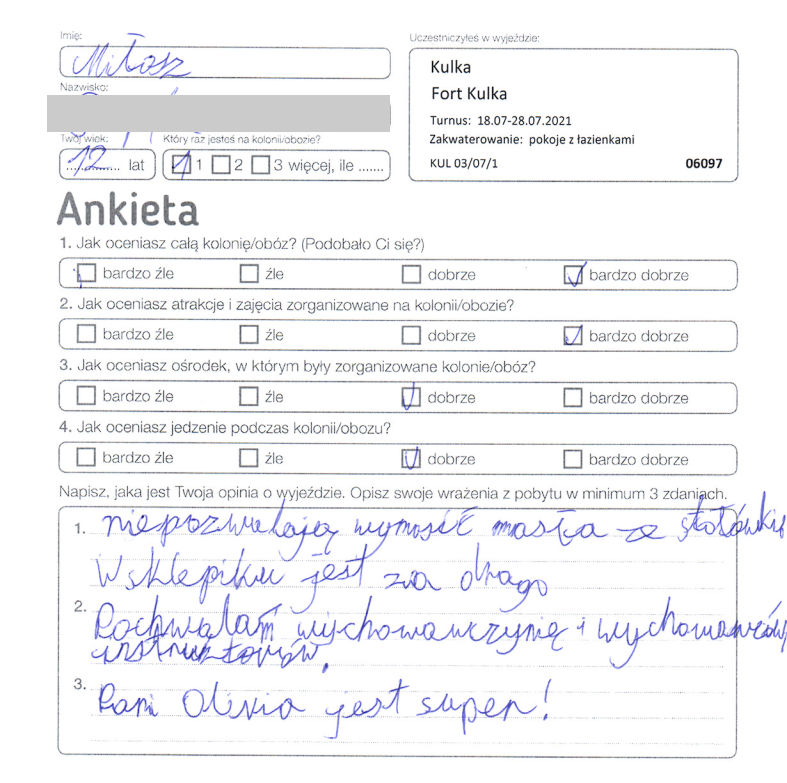 Imię:
Miłosz
Nazwisko:
Twój wiek:
12 lat
Który raz jesteś na kolonii/obozie?
1 2 3 więcej, ile .......
Uczestniczyłeś w wyjeździe:
Kulka
Fort Kulka
Turnus: 18.07-28.07.2021
Zakwaterowanie: pokoje z łazienkami
KUL 03/07/1 06097
Ankieta
1. Jak oceniasz całą kolonię/obóz? (Podobało Ci się?)
bardzo źle źle dobrze bardzo dobrze
2. Jak oceniasz atrakcje i zajęcia zorganizowane na kolonii/obozie?
bardzo źle źle dobrze bardzo dobrze
3. Jak oceniasz ośrodek, w którym były zorganizowane kolonie/obóz?
bardzo źle źle dobrze bardzo dobrze
4. Jak oceniasz jedzenie podczas kolonii/obozu?
bardzo źle źle dobrze bardzo dobrze
Napisz, jaka jest Twoja opinia o wyjeździe. Opisz swoje wrażenia z pobytu w minimum 3 zdaniach.
1. niepozwalają wynosić masła ze stołówki
W sklepiku jest za drago
2. Pochwalam wychowawczynię i wychowawców
instruktorów.
3. Pani Oliwia jest super!